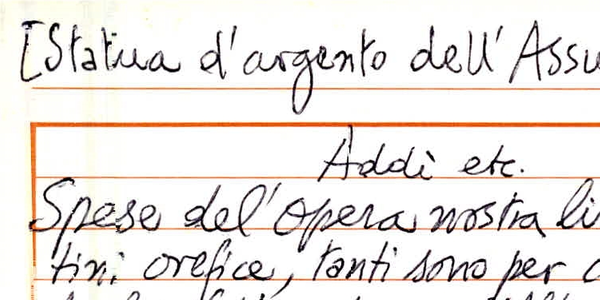 [Statua d'argento dell'Assu
Addì etc.
Spese del'opera nostra li
tini orefice, tanti sono per